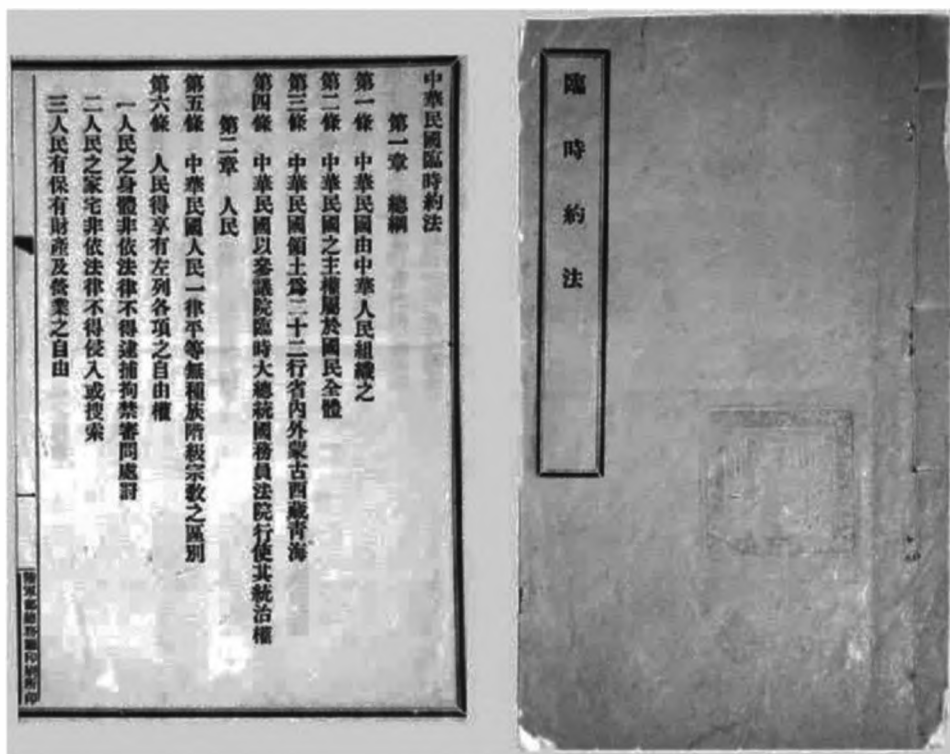 臨時約法
中華民國臨時約法
第一章 總綱
第一條 中華民國由中華人民組織之
第二條 中華民國之主權屬於國民全體
第三條 中華民國領土為二十二行省內外蒙古西藏青海
第四條 中華民國以參議院臨時大總統國務員法院行使其統治權
第二章 人民
第五條 中華民國人民一律平等無種族階級宗教之區別
第六條 人民得享有左列各項之自由權
一人民之身體非依法律不得逮捕拘禁審問處罰
二人民之家宅非依法律不得侵入或搜索
三人民有保有財產及營業之自由
一